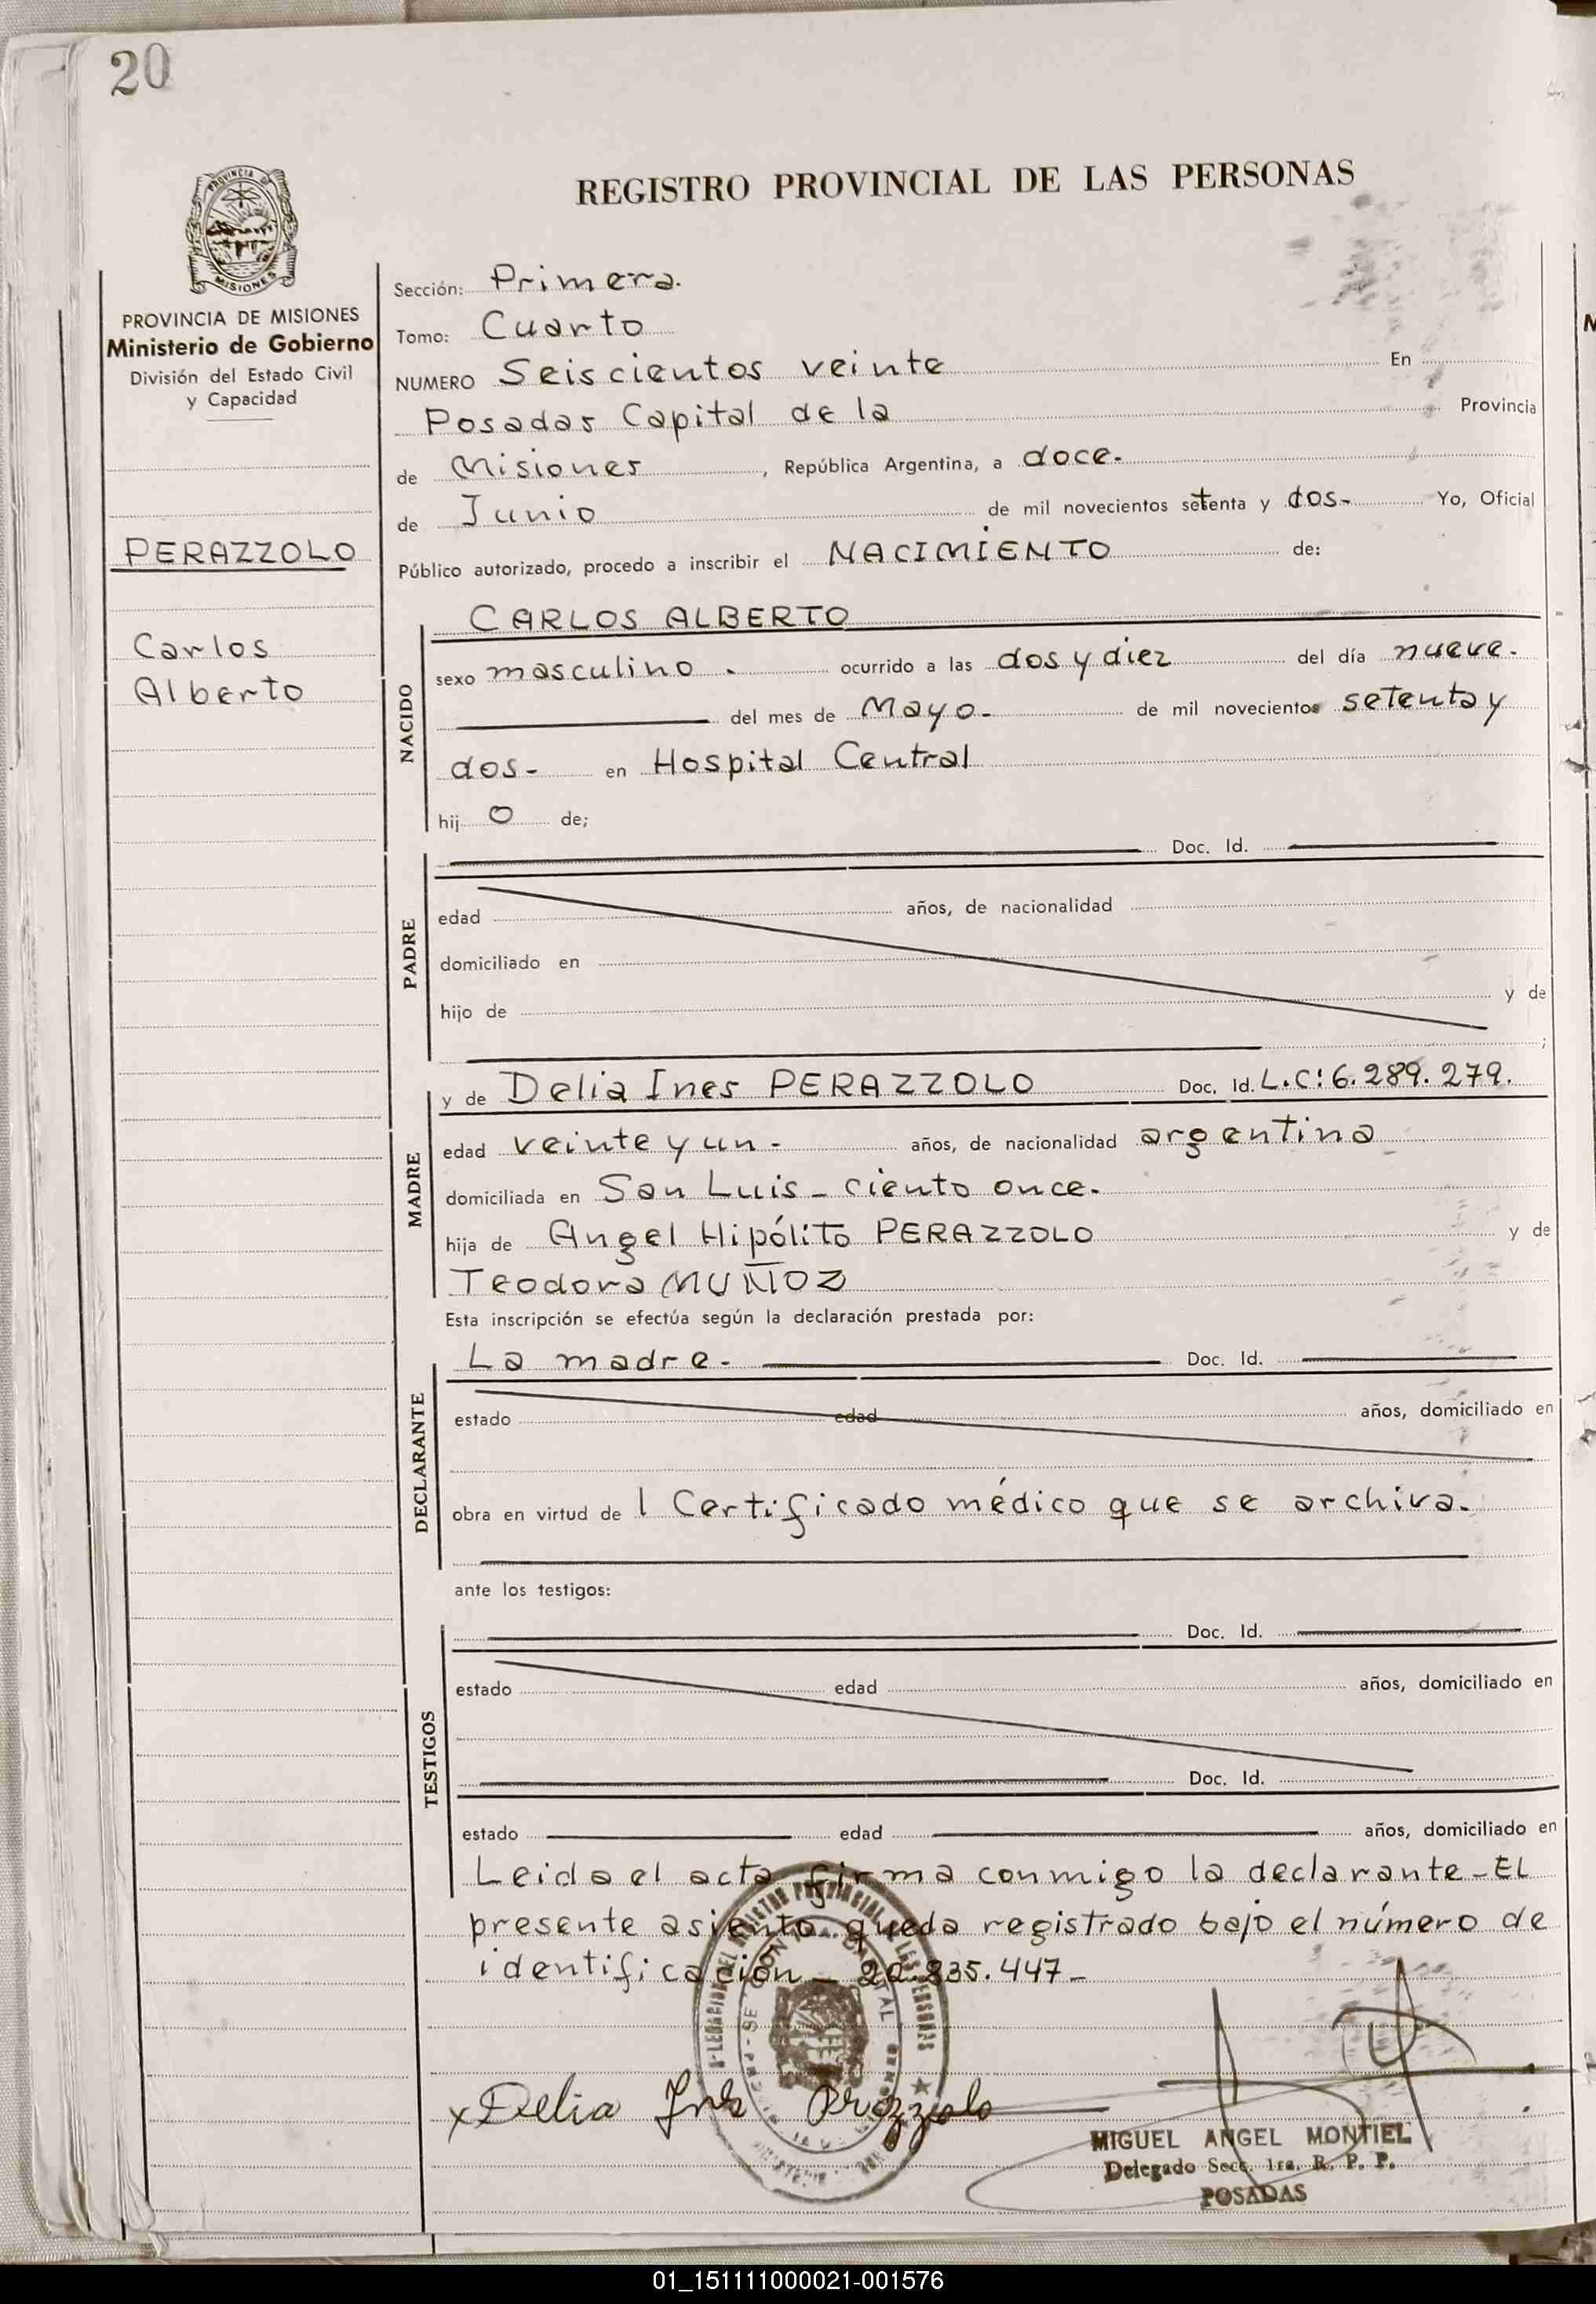 20
PROVINCIA DE
MISIONES
REGISTRO PROVINCIAL DE LAS PERSONAS
PROVINCIA DE MISIONES
Ministerio de Gobierno
División del Estado Civil
y Capacidad
PERAZZOLO
Carlos
Alberto
Sección: Primera.
Tomo: Cuarto
NUMERO Seiscientos veinte En
Posadas Capital de la Provincia
de Misiones, República Argentina, a doce.
de Junio de mil novecientos setenta y dos- Yo, Oficial
Público autorizado, procedo a inscribir el NACIMIENTO de:
NACIDO
CARLOS ALBERTO
sexo masculino. ocurrido a las dos y diez del día nueve.
del mes de Mayo- de mil novecientos setenta y
dos- en Hospital Central
hij o de;
PADRE
Doc. Id.
edad años, de nacionalidad
domiciliado en
hijo de y de
;
MADRE
y de Delia Ines PERAZZOLO Doc. Id. L.C: 6.289.279.
edad veinte y un- años, de nacionalidad argentina
domiciliada en San Luis - ciento once.
hija de Angel Hipólito PERAZZOLO y de
Teodora MUÑOZ
Esta inscripción se efectúa según la declaración prestada por:
DECLARANTE
La madre- Doc. Id.
estado edad años, domiciliado en
obra en virtud de l Certificado médico que se archiva.
ante los testigos:
TESTIGOS
Doc. Id.
estado edad años, domiciliado en
Doc. Id.
estado edad años, domiciliado en
Leida el acta firma conmigo la declarante-EL
presente asiento queda registrado bajo el número de
identificación - 835.447-
x Delia Ines Perazzolo
MIGUEL ANGEL MONTIEL
Delegado Secc. 1ra. R. P. P.
POSADAS
01_151111000021-001576